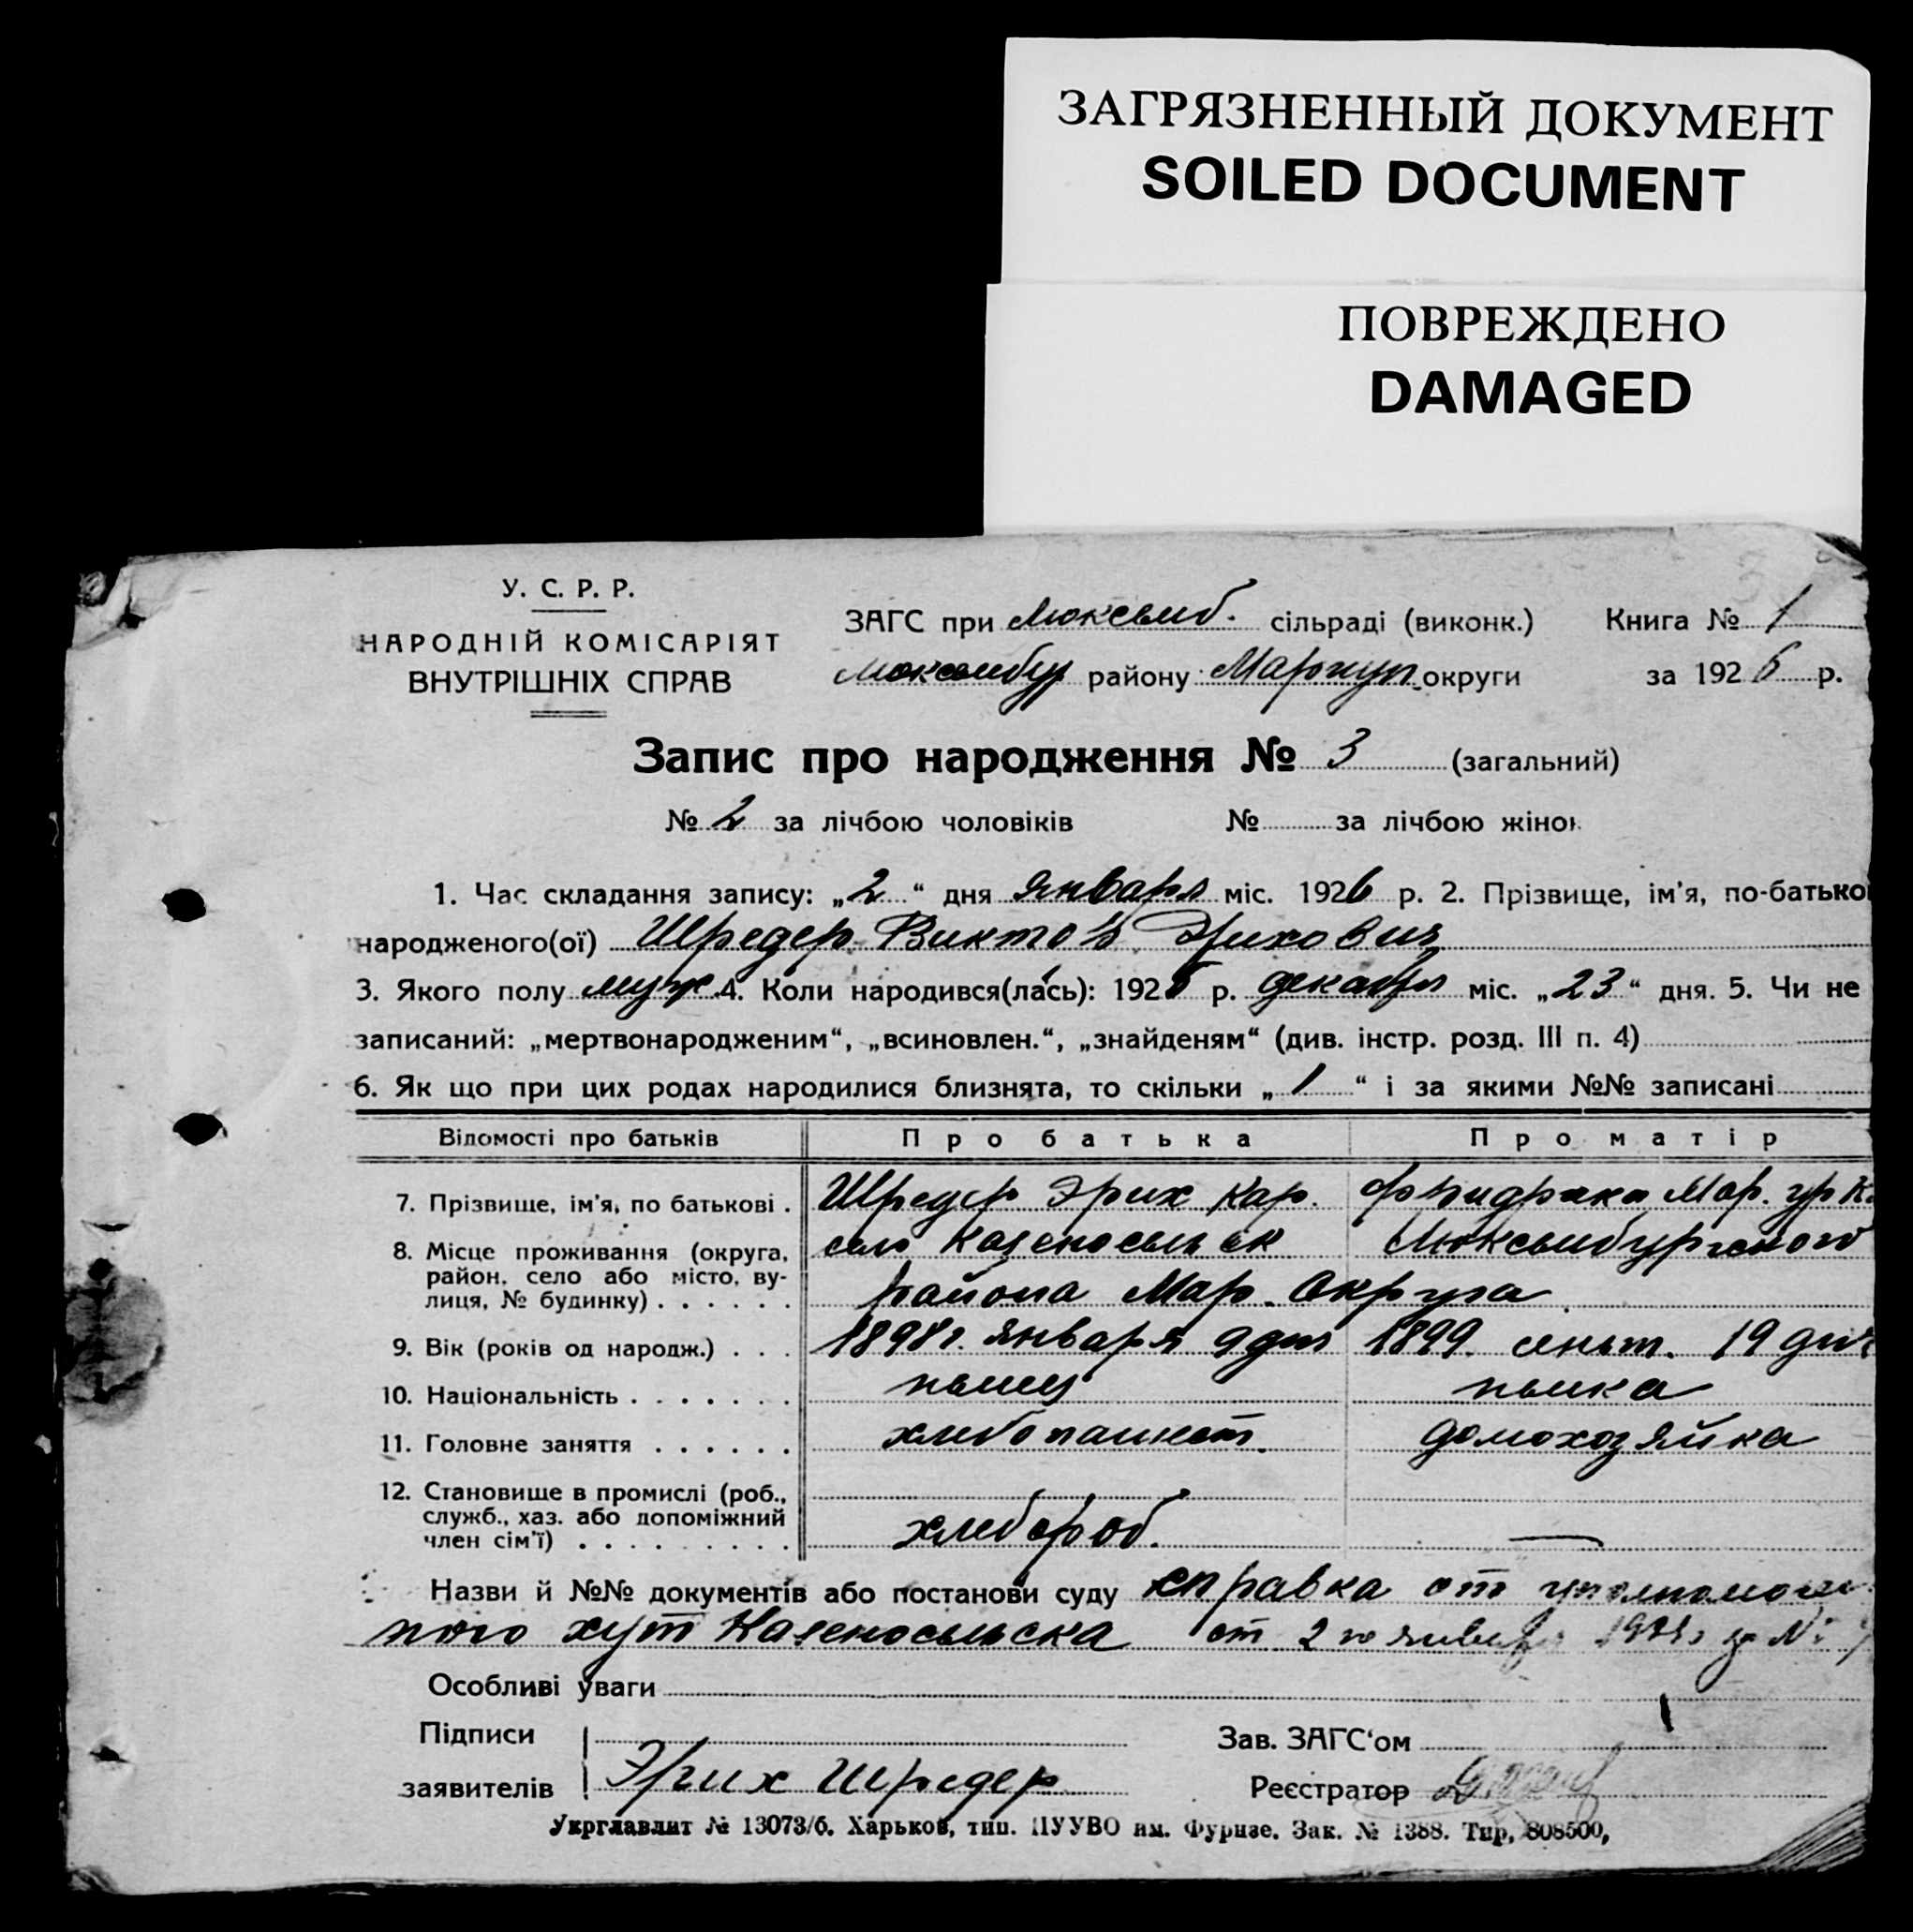 ЗАГРЯЗНЕННЫЙ ДОКУМЕНТ
SOILED DOCUMENT
ПОВРЕЖДЕНО
DAMAGED
У. С. Р. Р.
НАРОДНІЙ КОМІСАРІЯТ
ВНУТРІШНІХ СПРАВ
ЗАГС при Люксемб. сільраді (виконк.) Книга № 1
Люксембур району Мариуп. округи за 1926 р.
Запис про народження № 3 (загальний)
№ 2 за лічбою чоловіків № за лічбою жінок
1. Час складання запису: „2“ дня января міс. 1926 р. 2. Прізвище, ім'я, по-батько
народженого(ої) Шредер Виктор Эрихович
3. Якого полу муж. 4. Коли народився(лась): 1925 р. декабря міс. „23“ дня. 5. Чи не
записаний: „мертвонародженим“, „всиновлен.“, „знайденям“ (див. інстр. розд. III п. 4)
6. Як що при цих родах народилися близнята, то скільки „1“ і за якими №№ записані
Відомості про батьків Про батька Про матір
7. Прізвище, ім'я, по батькові . Шредер Эрих Кар. Мар.
8. Місце проживання (округа, район, село або місто, вулиця, № будинку) . . . . . . село Казеносельск Люксембургского
района Мар. Округа
9. Вік (років од народж.) . . . 1898 г. января 9 дня 1899. сеньт. 19 дня
10. Національність . . . . . . . немец немка
11. Головне заняття . . . . . . хлебопашест. домохозяйка
12. Становище в промислі (роб., служб., хаз. або допоміжний член сім'ї) . . . . . . . . . хлебороб. —
Назви й №№ документів або постанови суду справка от уполномочен
ного хут Казеносельска от 2 го января за №
Особливі уваги
Підписи Зав. ЗАГС'ом
заявителів Эрих Шредер Реєстратор
Укрглавлит № 13073/б. Харьков, тип. ПУУВО им. Фрунзе. Зак. № 1388. Тир. 808500,